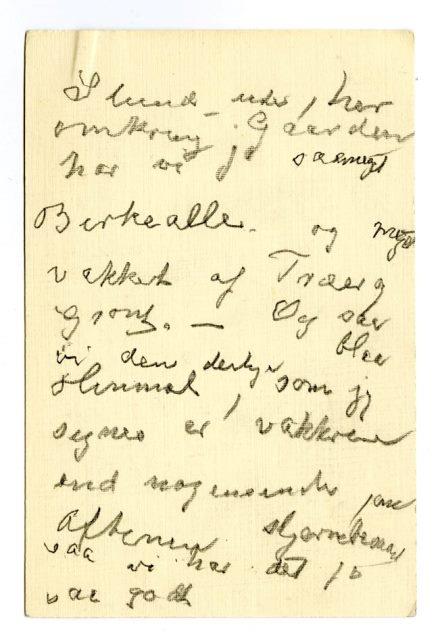 I lund uden, her
omkring Gaarden
har vi jo saameget
Birkealle. og meget
vakkert af Træer og
grønt. — Og saa
vi den deilige blaa
Himmel, som jeg
synes er vakkrere
end nogensinde, om
Aftenen stjerneklar
saa vi har det jo
saa godt